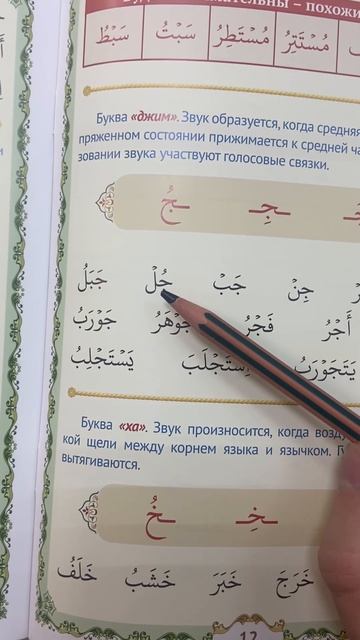 – похожи
مُسْتَتِرُ مُسْتَطِرُ سَبْتُ سَبْطُ
Буква «джим». Звук образуется, когда средняя
пряженном состоянии прижимается к средней ча
зовании звука участвуют голосовые связки.
ـجِـ ـجُ
جِنْ جَبْ جُلْ جَبَلُ
أَجْرُ فَجْرُ جَوْهَرُ جَوْرَبُ
يَتَجَوْرَبُ يَسْتَجْلِبُ
Буква «ха». Звук произносится, когда возду
кой щели между корнем языка и язычком. Г
вытягиваются.
ـخِـ ـخُ
خَرَجَ خَبَرَ خَشَبُ خَلَفُ
12